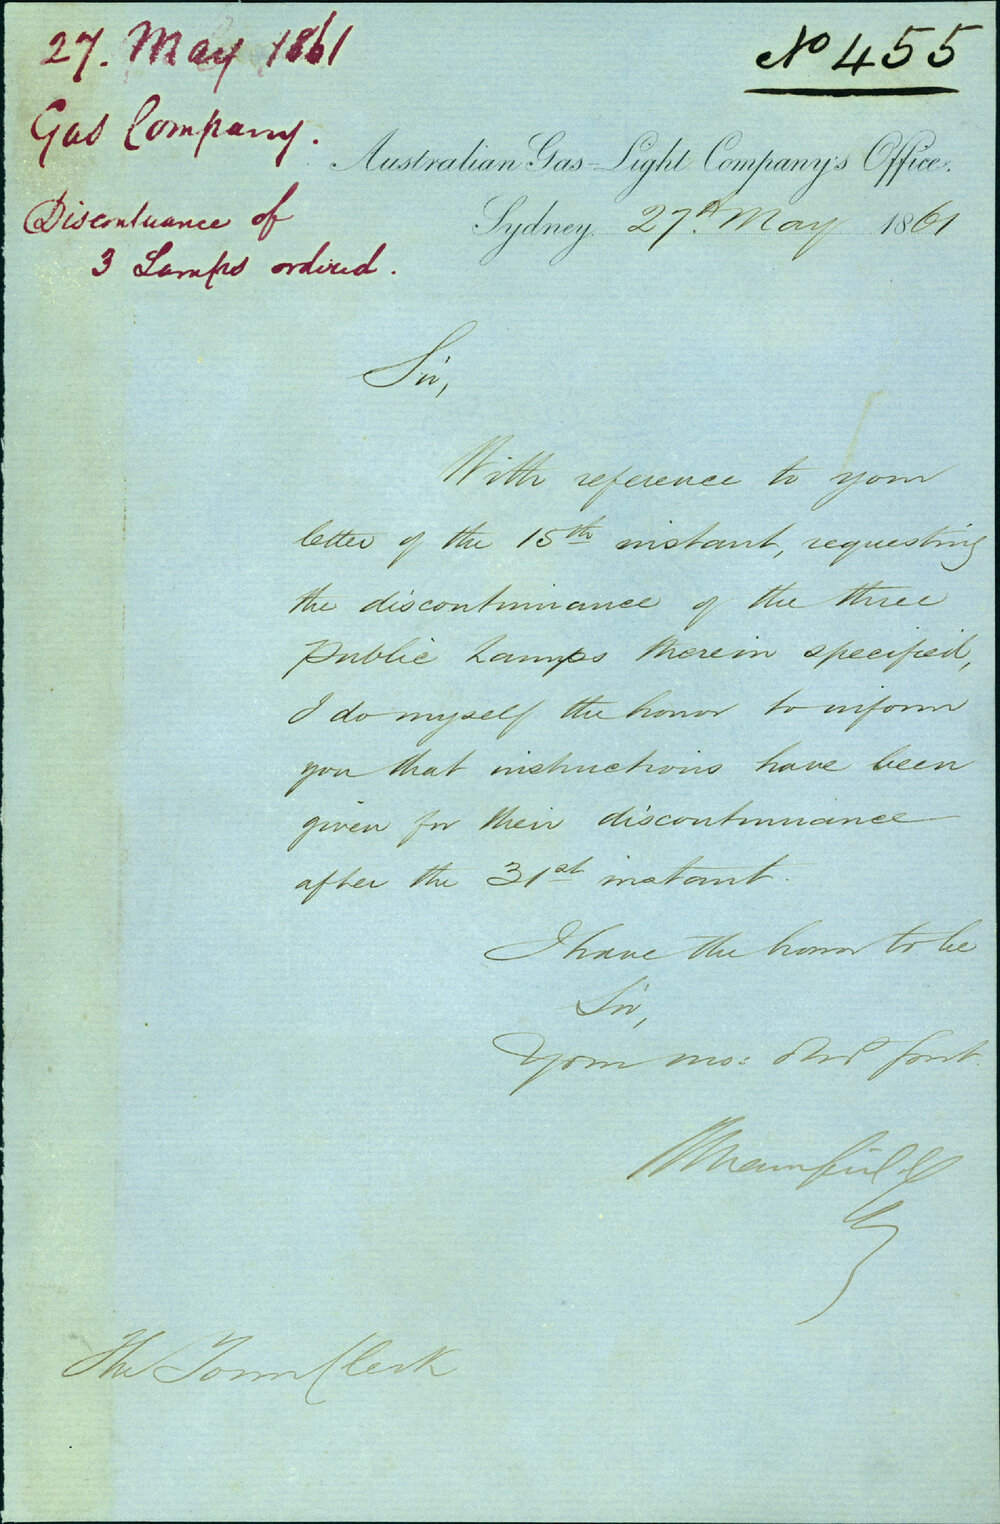 27. May 1861
No 455
Gas Company.
Australian Gas-Light Company's Office.
Discontuance of
3 Lamps ordered.
Sydney, 27th May 1861
Sir,
With reference to your
letter of the 15th instant, requesting
the discontinuance of the three
Public Lamps therein specified,
I do myself the honor to inform
you that instructions have been
given for their discontinuance
after the 31st instant.
I have the honor to be
Sir,
Your mo: obdt servt
The Town Clerk